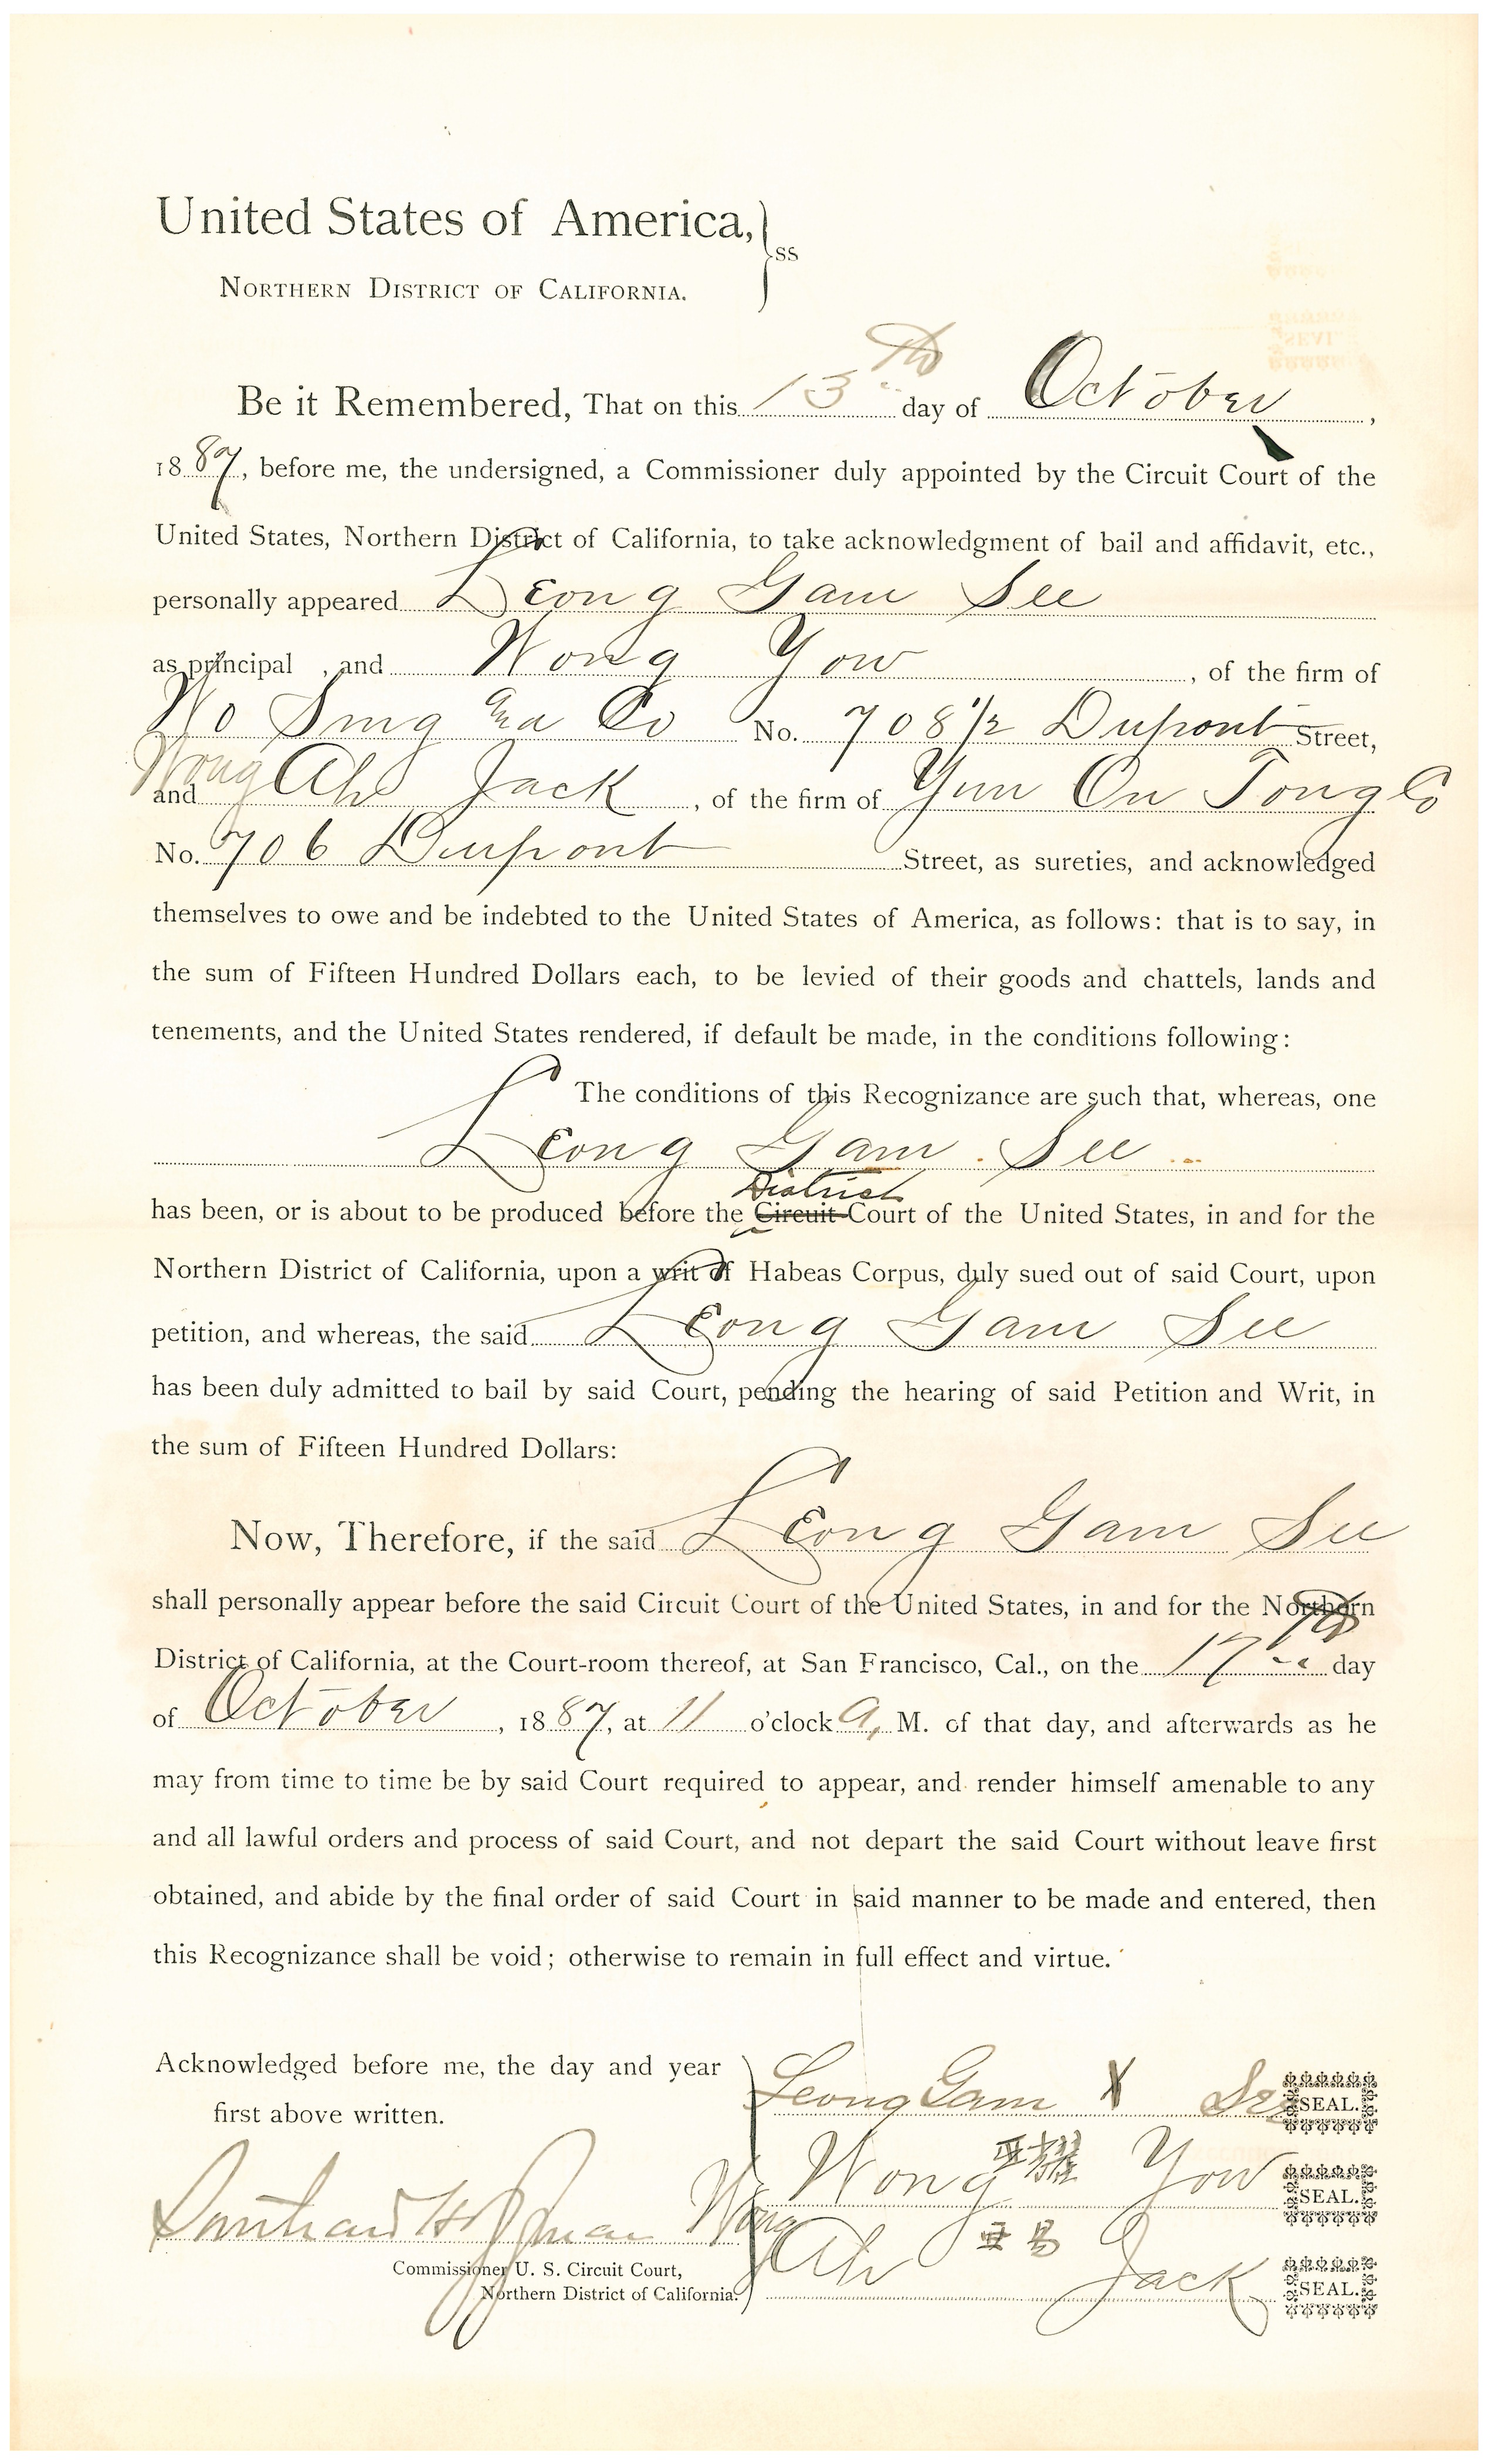 United States of America,
SS
NORTHERN DISTRICT OF CALIFORNIA.
Be it Remembered, That on this 13th day of October,
1887, before me, the undersigned, a Commissioner duly appointed by the Circuit Court of the
United States, Northern District of California, to take acknowledgment of bail and affidavit, etc.,
personally appeared Leong Gam See
as principal , and Wong Yow, of the firm of
Wo Sing Co No. 708 1/2 Dupont Street,
and Wong Ah Jack, of the firm of Yun On Tong Co
No. 706 Dupont Street, as sureties, and acknowledged
themselves to owe and be indebted to the United States of America, as follows: that is to say, in
the sum of Fifteen Hundred Dollars each, to be levied of their goods and chattels, lands and
tenements, and the United States rendered, if default be made, in the conditions following:
The conditions of this Recognizance are such that, whereas, one
Leong Gam See
District
has been, or is about to be produced before the Circuit Court of the United States, in and for the
Northern District of California, upon a writ of Habeas Corpus, duly sued out of said Court, upon
petition, and whereas, the said Leong Gam See
has been duly admitted to bail by said Court, pending the hearing of said Petition and Writ, in
the sum of Fifteen Hundred Dollars:
Now, Therefore, if the said Leong Gam See
shall personally appear before the said Circuit Court of the United States, in and for the Northern
District of California, at the Court-room thereof, at San Francisco, Cal., on the 17th day
of October, 1887, at 11 o'clock A. M. of that day, and afterwards as he
may from time to time be by said Court required to appear, and render himself amenable to any
and all lawful orders and process of said Court, and not depart the said Court without leave first
obtained, and abide by the final order of said Court in said manner to be made and entered, then
this Recognizance shall be void; otherwise to remain in full effect and virtue.
Acknowledged before me, the day and year
first above written.
Leong Gam X See SEAL.
Wong Yow SEAL.
Wong Ah Jack SEAL.
Commissioner U. S. Circuit Court,
Northern District of California.